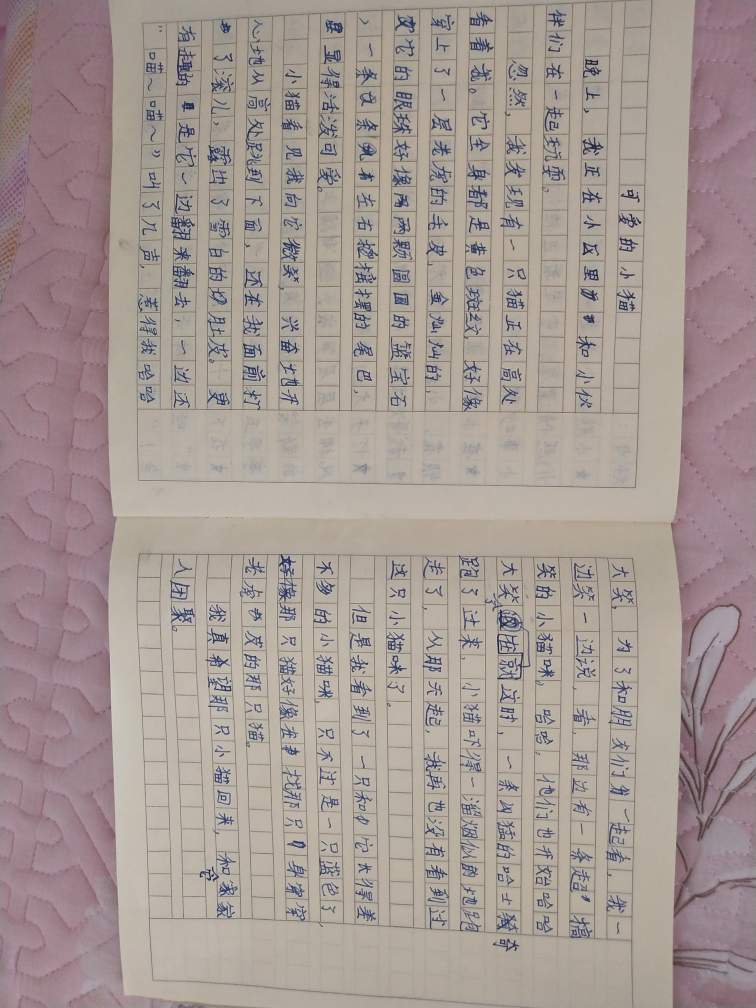 可爱的小猫
晚上，我正在小区里和小伙
伴们在一起玩耍。
忽然，我发现有一只猫正在高处
看着我。它全身都是黄色斑纹，好像
穿上了一层老虎的毛皮，金灿灿的，
它的眼球好像两颗圆圆的蓝宝石
，一条左右摇摆的尾巴，
显得活泼可爱。
小猫看见我向它微笑，兴奋地开
心地从高处跳到下面，还在我面前打
了滚儿，露出了雪白的肚皮。更
有趣的是它一边翻来翻去，一边还
“喵～喵～”叫了几声，惹得我哈哈
大笑，为了和朋友们一起看，我一
边笑一边说，看，那边有一条超搞
笑的小猫咪，哈哈，他们也开始哈哈
大笑就在这时，一条凶猛的哈士奇
跑了过来，小猫吓得一溜烟似的地跑
走了，从那天起，我再也没有看到过
这只小猫咪了。
但是我看到了一只和它长得差
不多的小猫咪，只不过是一只蓝色了，
那只猫好像在找那只身穿
老虎皮的那只猫。
我真希望那只小猫回来，和它家
人团聚。